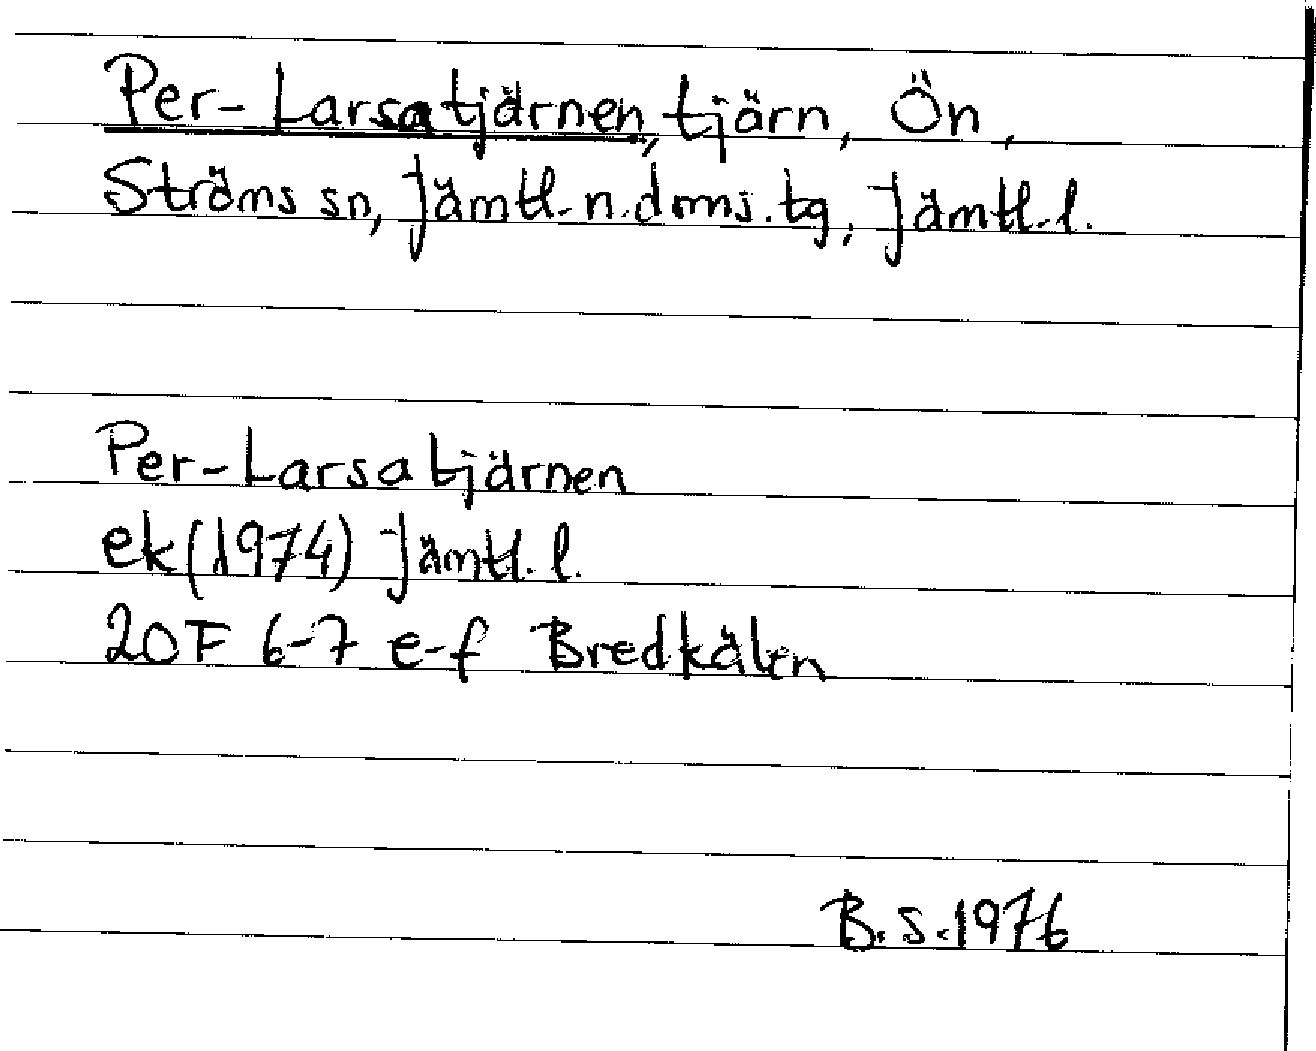 Per-Larsatjärnen, tjärn, Ön,
Ströms sn, Jämtl. n. doms. tg, Jämtl. l.
Per-Larsatjärnen
ek (1974) Jämtl. l.
20F 6-7 e-f Bredkälen
B.S. 1976